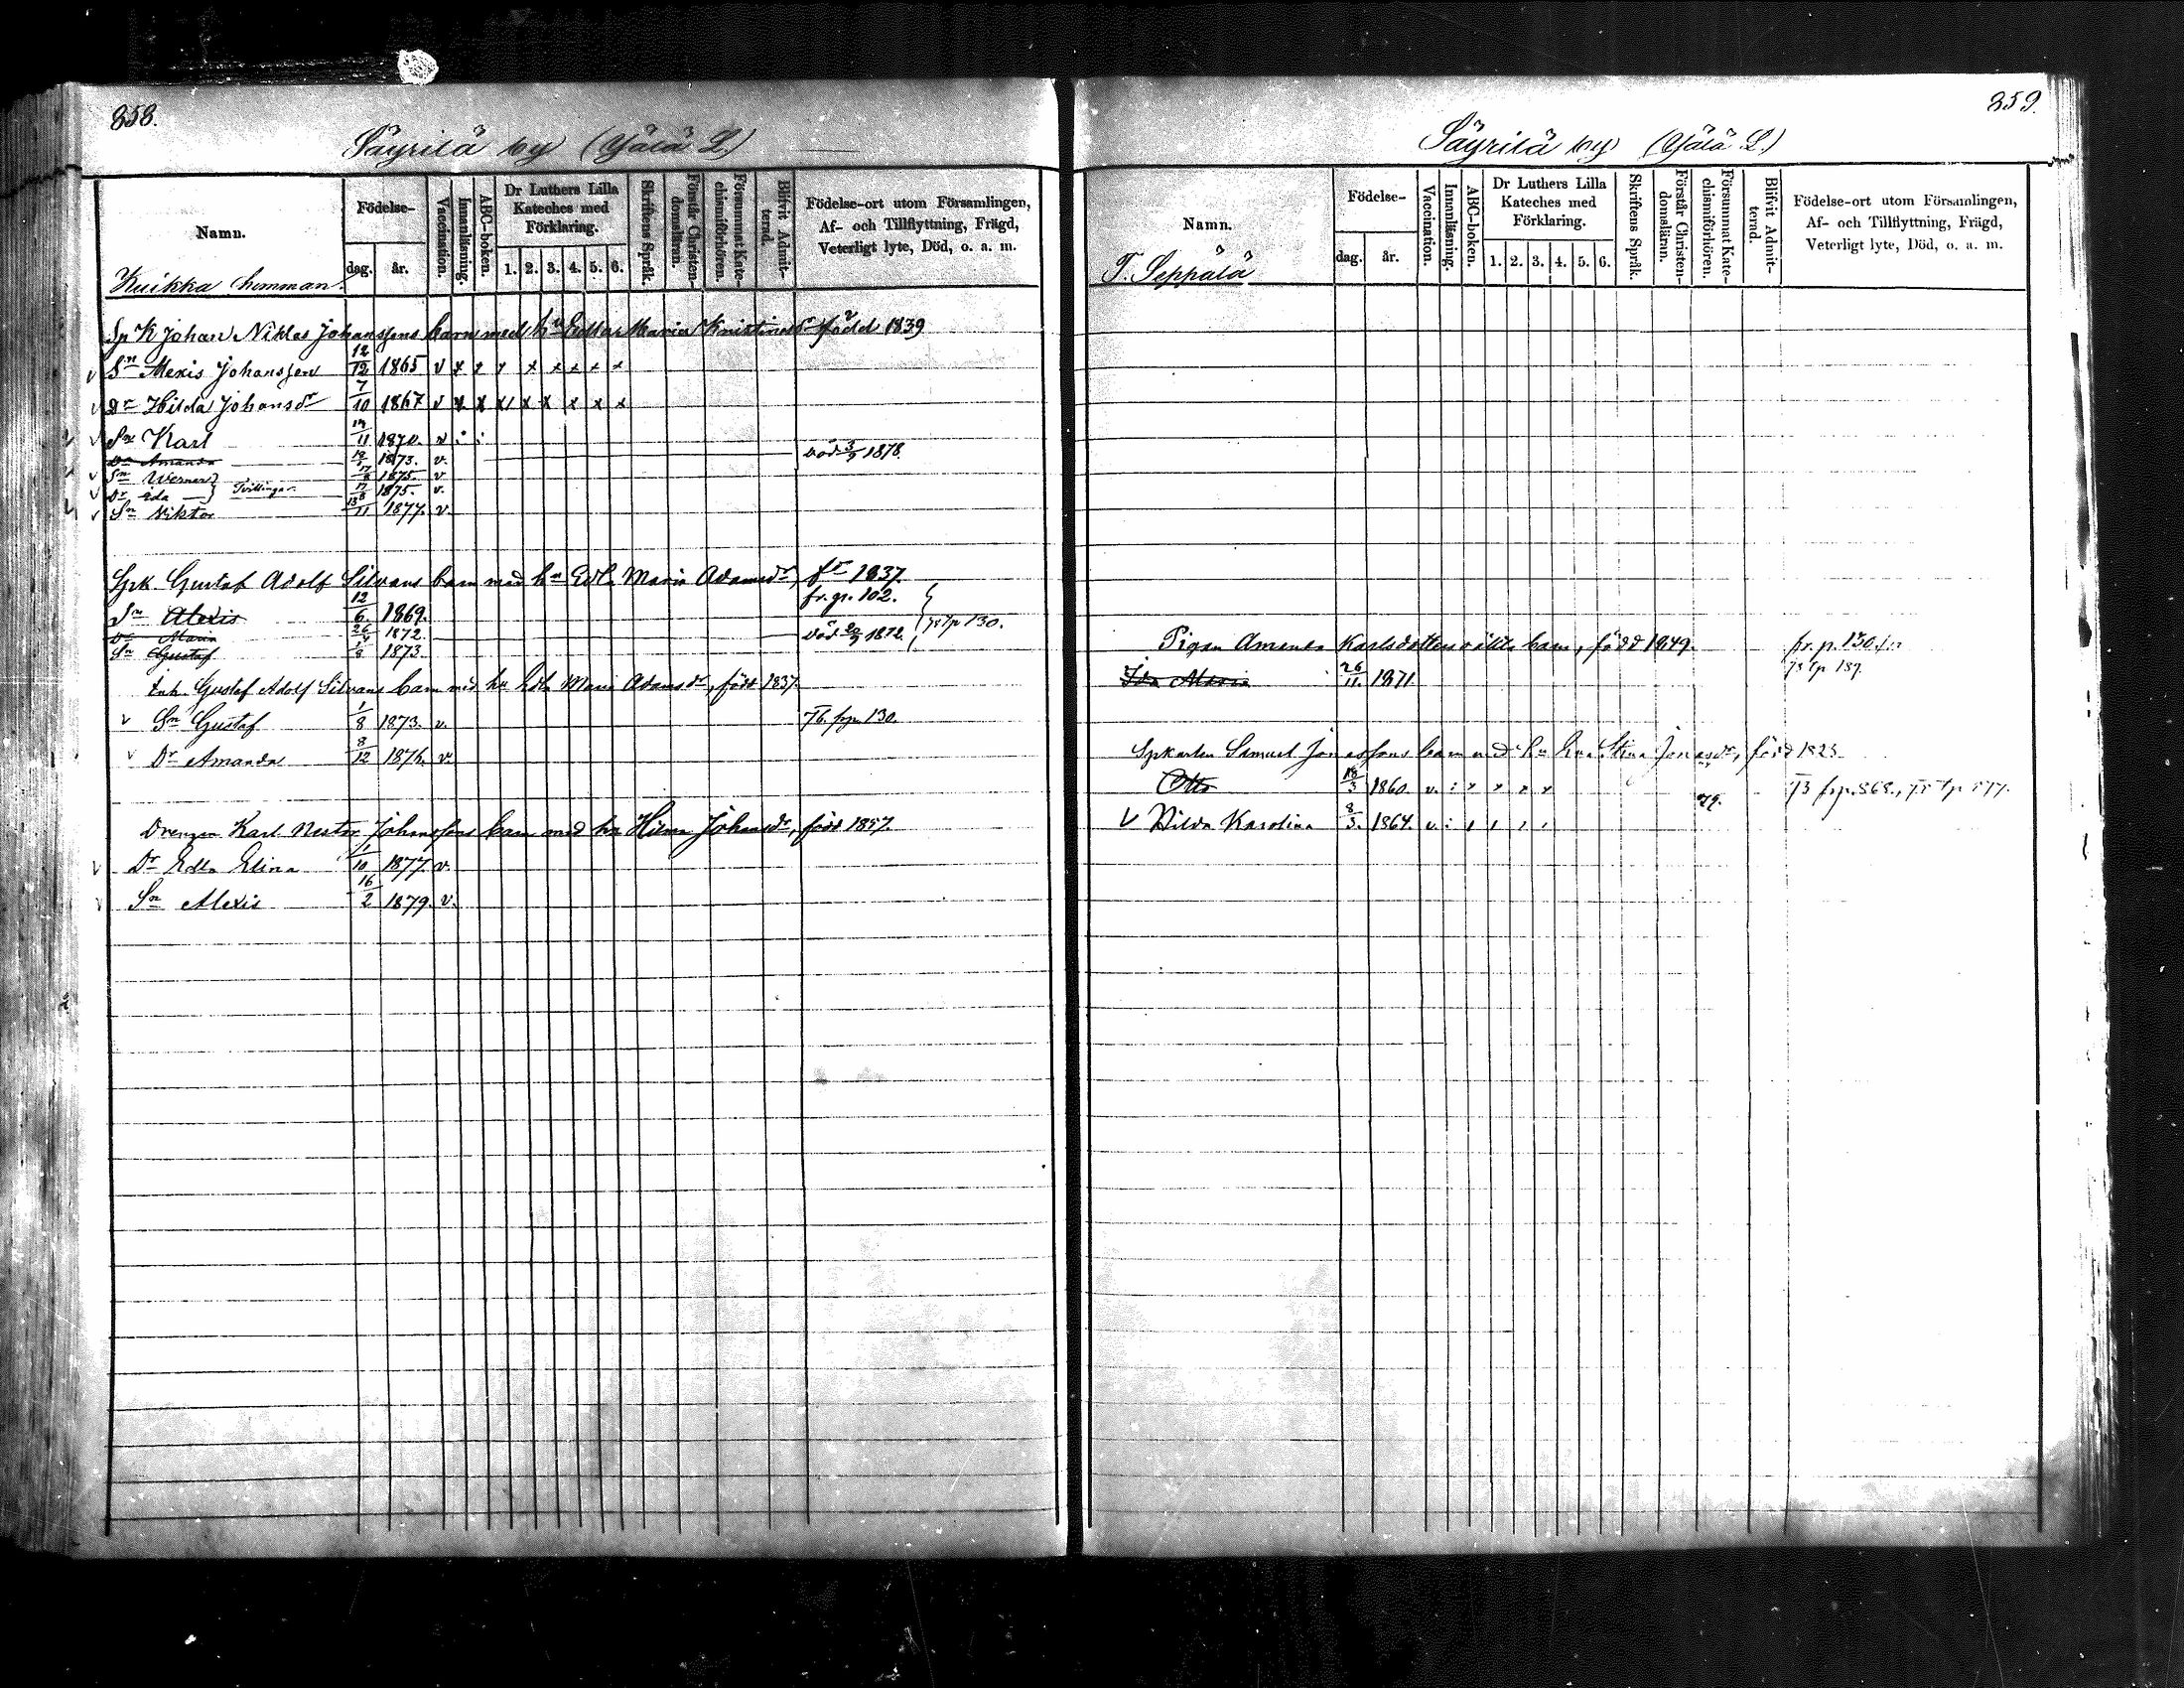 858.
Säyrilä by (Yälä L.)
Namn.
Födelse-
dag.
år.
Vaccination.
Innanläsning.
ABC-boken.
Dr Luthers Lilla Kateches med Förklaring.
1. 2. 3. 4. 5. 6.
Skriftens Språk.
Förstår Christendomsläran.
Försummat Katechismiförhören.
Blifvit Admitterad.
Födelse-ort utom Församlingen,
Af- och Tillflyttning, Frägd,
Veterligt lyte, Död, o. a. m.
Kuikka hemman.
Sp K Johan Niklas Johanssons barn med hu Edla Maria Kristina född 1839
v Sn Alexis Johansson 12/12 1865 v x x x x x x x x
v Dr Hilda Johansdr 7/10 1867 v x x x x x x x x
v Sn Karl 11 1870. v
Dr Amanda 1873. v. död 3/9 1878.
v Sn Werner 17/8 1875. v
v Dr Ida Tvillingar 17/8 1875. v.
v Sn Viktor 13/11 1877. v.
Spk. Gustaf Adolf Silvans barn med hu Edla Maria Adamsdr, 1837.
fr. p. 102.
Sn Alexis 12/6 1869.
Dr Maria 1872. död 1872. 75 tp 130.
Sn Gustaf 1/8 1873
Inh. Gustaf Adolf Silvans barn med hu Edla Maria Adamsdr, född 1837
v Sn Gustaf 1/8 1873. v. 76. frp. 130.
v Dr Amanda 8/12 1876. v.
Drengen Karl Nestor Johanssons barn med hu Hilma Johansdr, född 1857.
v Dr Edla Elina 1/10 1877. v.
v Sn Alexis 16/2 1879. v.
859.
Säyrilä by (Yälä L.)
Namn.
Födelse-
dag.
år.
Vaccination.
Innanläsning.
ABC-boken.
Dr Luthers Lilla Kateches med Förklaring.
1. 2. 3. 4. 5. 6.
Skriftens Språk.
Förstår Christendomsläran.
Försummat Katechismiförhören.
Blifvit Admitterad.
Födelse-ort utom Församlingen,
Af- och Tillflyttning, Frägd,
Veterligt lyte, Död, o. a. m.
T. Seppälä
Pigan Amanda Karlsdotters oäkta barn, född 1849. fr. p. 130.
Ida Maria 26/11. 1871 75 tp 187.
Spkarlen Samuel Jonassons barn med hu Eva Stina Jonasdr, född 1823.
Otto 18/3 1860. v. : x x x x 73 frp. 868., 75 tp 877.
79.
v Hilda Karolina 8/3. 1864. v.